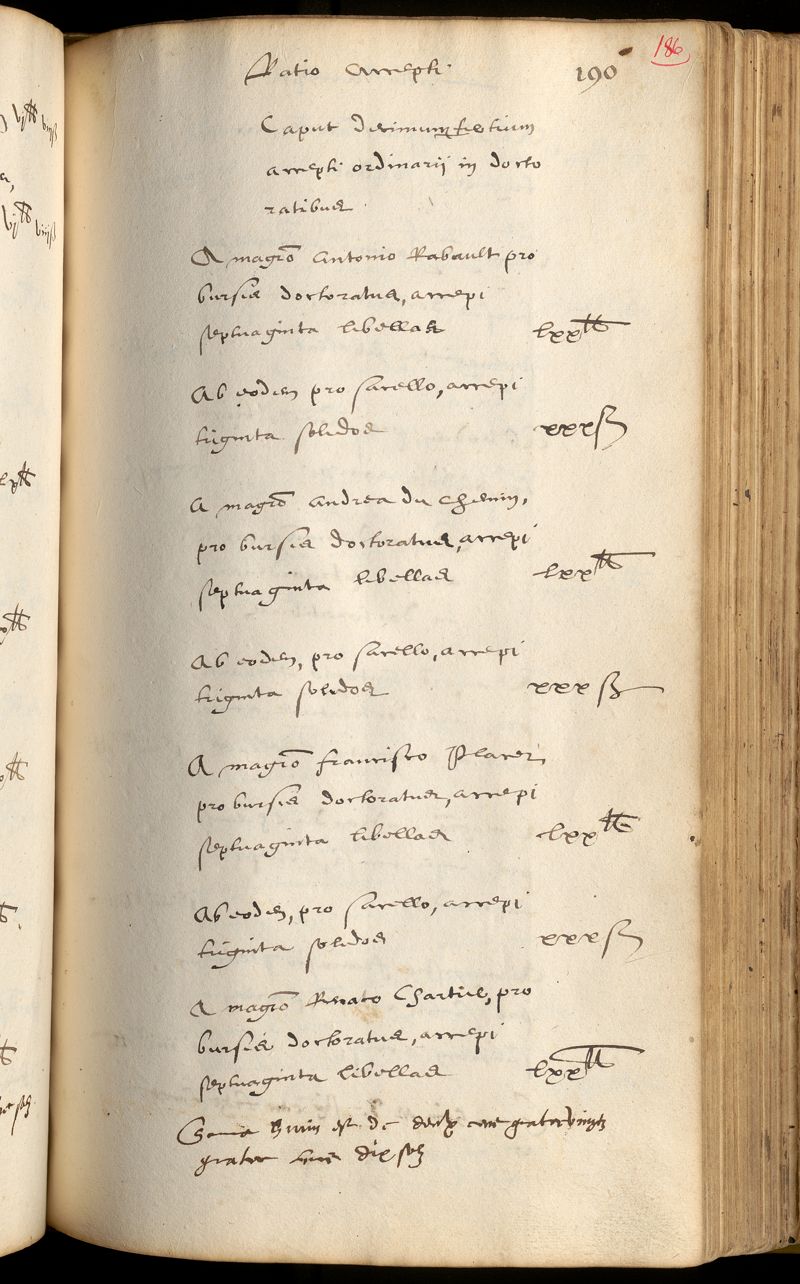 186
Ratio accepti 190
Caput decimumtertium
accepti ordinarij in docto
ratibus
A magrō Antonio Rabault pro
bursis doctoratus, accepi
septuaginta libellas lxx ₶
Ab eodem pro sacello, accepi
triginta solidos xxx ß
A magrō Andrea du Chemin,
pro bursis doctoratus, accepi
septuaginta libellas lxx ₶
Ab eodem, pro sacello, accepi
triginta solidos xxx ß
A magrō francisco Placet
pro bursis doctoratus, accepi
septuaginta libellas lxx ₶
Ab eodem, pro sacello, accepi
triginta solidos xxx ß
A magrō Renato Chartier, pro
bursis doctoratus, accepi
septuaginta libellas lxx ₶
est de deux cens quatorvingtz
quatre dix